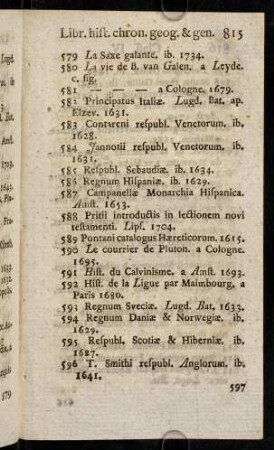 Libr. hiſt. chron. geog. & gen. 815
579 La Saxe galante. ib. 1734.
580 La vie de B. van Galen. a Leyde.
c. fig.
581 — — — a Cologne. 1679.
582 Principatus Italiæ. Lugd. Bat. ap.
Elzev. 1631.
583 Contareni reſpubl. Venetorum. ib.
1628.
584 Jannotii reſpubl. Venetorum. ib.
1631.
585 Reſpubl. Sebaudiæ. ib. 1634.
586 Regnum Hiſpaniæ. ib. 1629.
587 Campanellæ Monarchia Hiſpanica.
Amſt. 1653.
588 Pritii introductis in lectionem novi
teſtamenti. Lipſ. 1704.
589 Pontani catalogus Hæreticorum. 1615.
590 Le courrier de Pluton. a Cologne.
1695.
591 Hiſt. du Calvinisme. a Amſt. 1693.
592 Hiſt. de la Ligue par Maimbourg. a
Paris 1680.
593 Regnum Sveciæ. Lugd. Bat. 1633.
594 Regnum Daniæ & Norwegiæ. ib.
1629.
595 Reſpubl. Scotiæ & Hiberniæ. ib.
1627.
596 T. Smithi reſpubl. Anglorum. ib.
1641.
597